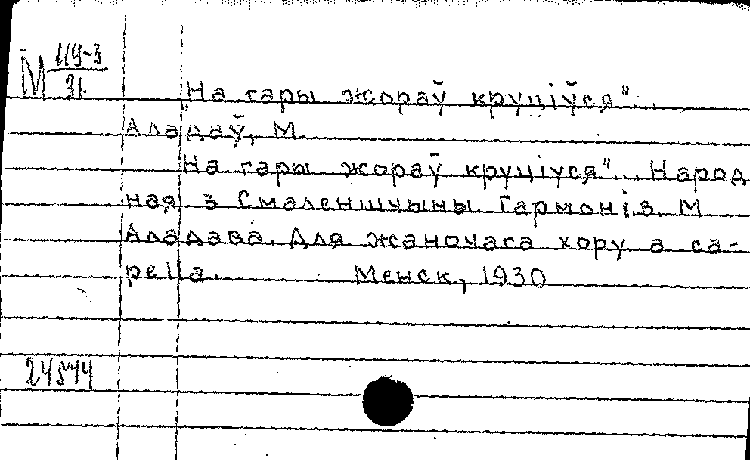 М 119-3
31
„На гары жораў круціўся"...
Аладаў, М.
На гары жораў круціуся"... Народ
ная з Смаленшчыны. Гармоніз. М
Аладава. Для жаночага хору a ca-
pella. Менск, 1930